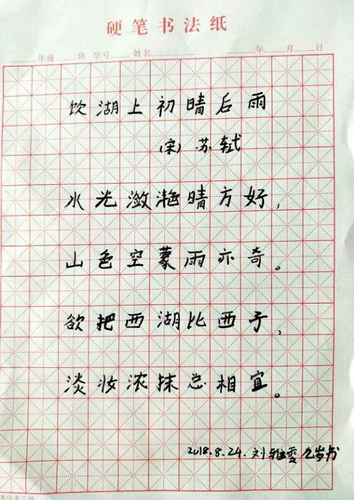 硬笔书法纸
年级 班 学号 姓名 年 月 日
饮湖上初晴后雨
(宋) 苏轼
水光潋滟晴方好,
山色空蒙雨亦奇。
欲把西湖比西子,
淡妆浓抹总相宜。
2018.8.24.刘雅雯 九岁书